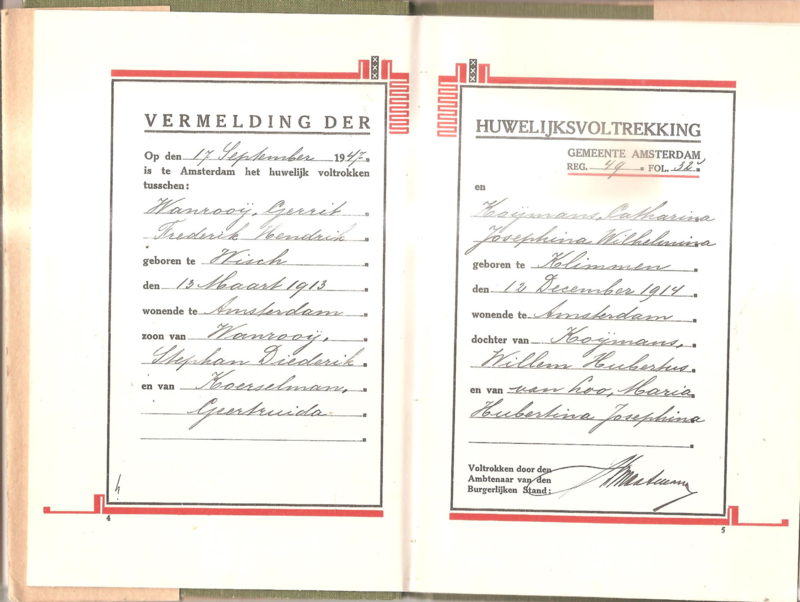 VERMELDING DER
Op den 17 September 1947.
is te Amsterdam het huwelijk voltrokken
tusschen:
Wanrooÿ, Gerrit
Frederik Hendrik
geboren te Wisch
den 13 Maart 1913
wonende te Amsterdam
zoon van Wanrooÿ,
Stephan Diederik
en van Koerselman,
Geertruida
4
HUWELIJKSVOLTREKKING
GEMEENTE AMSTERDAM
REG. 49. FOL. 32
en
Kooÿmans, Catharina
Josephina Wilhelmina
geboren te Klimmen
den 12 December 1914
wonende te Amsterdam
dochter van Kooÿmans,
Willem Hubertus
en van van Loo, Maria
Hubertina Josephina
Voltrokken door den
Ambtenaar van den
Burgerlijken Stand:
5